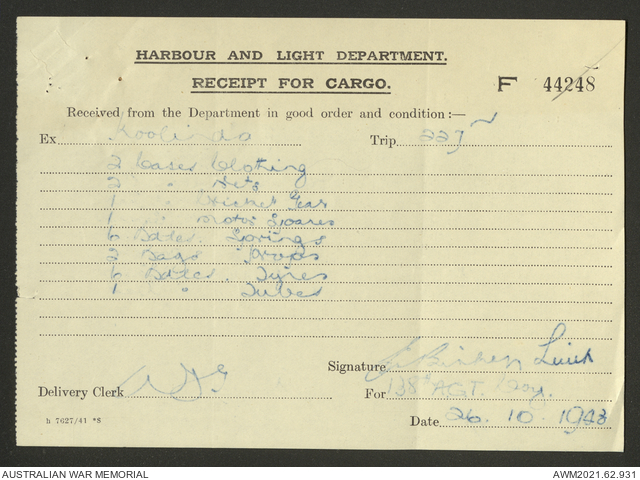 HARBOUR AND LIGHT DEPARTMENT.
RECEIPT FOR CARGO.
F 44248
Received from the Department in good order and condition:—
Ex Koolinda Trip 227
2 Cases Clothing
2 " Nets
1 " Gear
1 " Motor Spares
6 Bdles. Springs
2 Bags
6 Bdles. Tyres
1 " Tubes
Signature Lieut
Delivery Clerk
For 138 A.G.T. Coy.
h 7627/41 *S
Date 26.10.1943
AUSTRALIAN WAR MEMORIAL
AWM2021.62.931